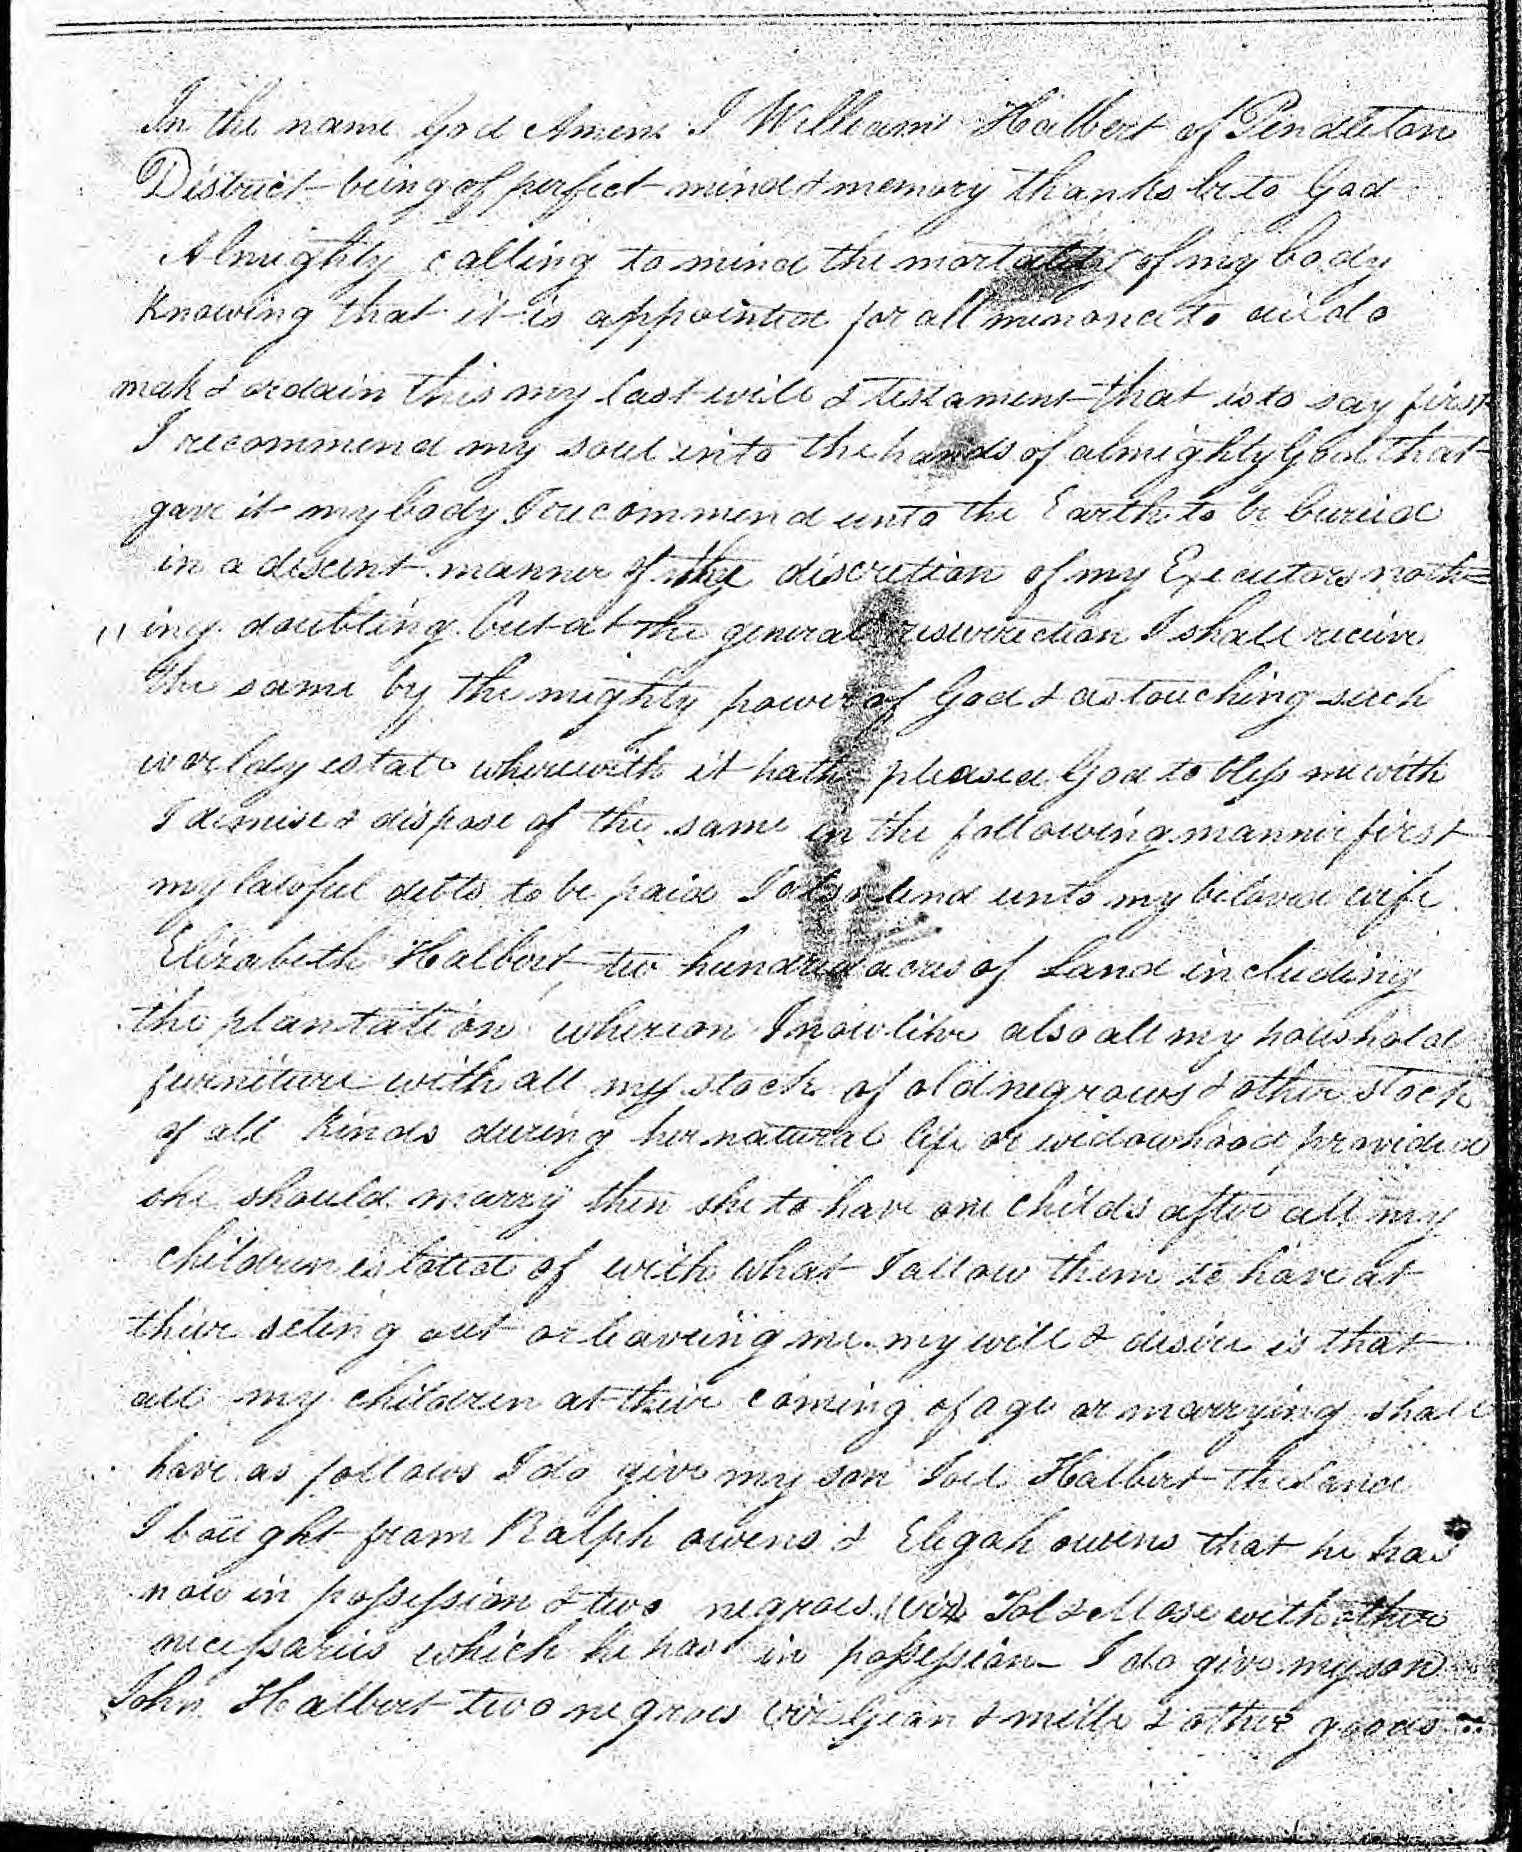 In the name God Amen I William Halbert of Pendleton
District being of perfect mind & memory thanks be to God
Almighty calling to mind the mortality of my body
Knowing that it is appointed for all men once to die do
mak & ordain this my last will & testament that is to say first
I recommend my soul into the hands of almighty God that
gave it my body I recommend unto the Earth to be buried
in a descent manner of the discretion of my Executors noth=
ing doubting but at the general resurrection I shall receive
the same by the mighty power of God & as touching such
worldy estate wherewith it hath pleased God to bless me with
I demise & dispose of the same in the following manner first
my lawful debts to be paid I also lend unto my beloved wife
Elizabeth Halbert two hundred acres of Land including
the plantation whereon I now live also all my houshold
furniture with all my stock of old negrows & other stock
of all Kinds during her natural life or widowhood provided
she should marry then she to have one childs after all my
children is loted of with what I allow them to have at
their seting out or leaveing me. my will & desire is that
all my children at their coming of age or marrying shall
have as follows I do give my son Joel Halbert the land
I bought from Ralph owens & Elijah owens that he has
now in possession & two negroes (viz) Tol & Mose with other
necessaries which he has in possession I do give my son
John Halbert two negroes (viz) & mille & other goods